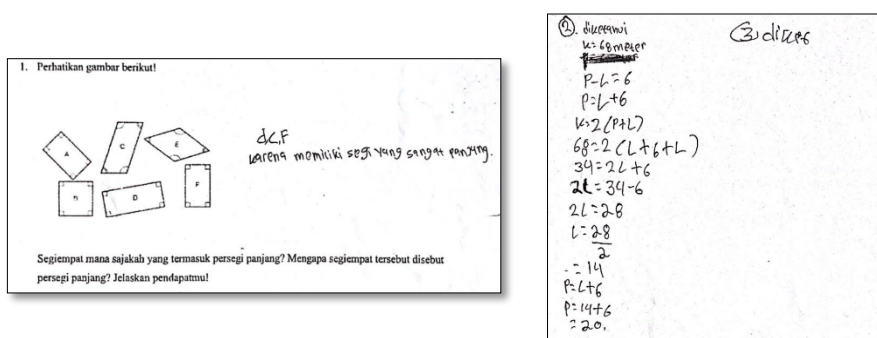 1. Perhatikan gambar berikut!
A
C
E
B
D
F
d.C.F
karena memiliki segi yang sangat panjang.
Segiempat mana sajakah yang termasuk persegi panjang? Mengapa segiempat tersebut disebut
persegi panjang? Jelaskan pendapatmu!
②. diketahui
k=68 meter
P-L=6
P=L+6
K=2(P+L)
68=2(L+6+L)
34=2L+6
2L=34-6
2L=28
L=28
2
=14
P=L+6
P=14+6
=20.
③